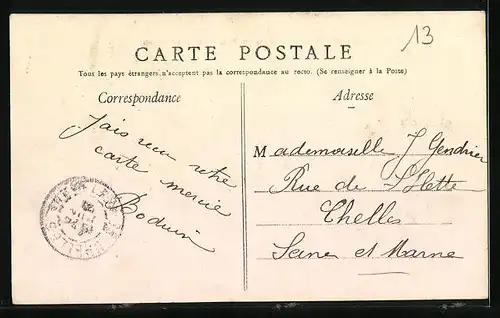 13
CARTE POSTALE
Tous les pays étrangers n'acceptent pas la correspondance au recto. (Se renseigner à la Poste)
Correspondance
Adresse
J'ais recu votre
carte mercie
Boduin
Mademoiselle J Gendrier
Rue de
Chelles
Seine et Marne